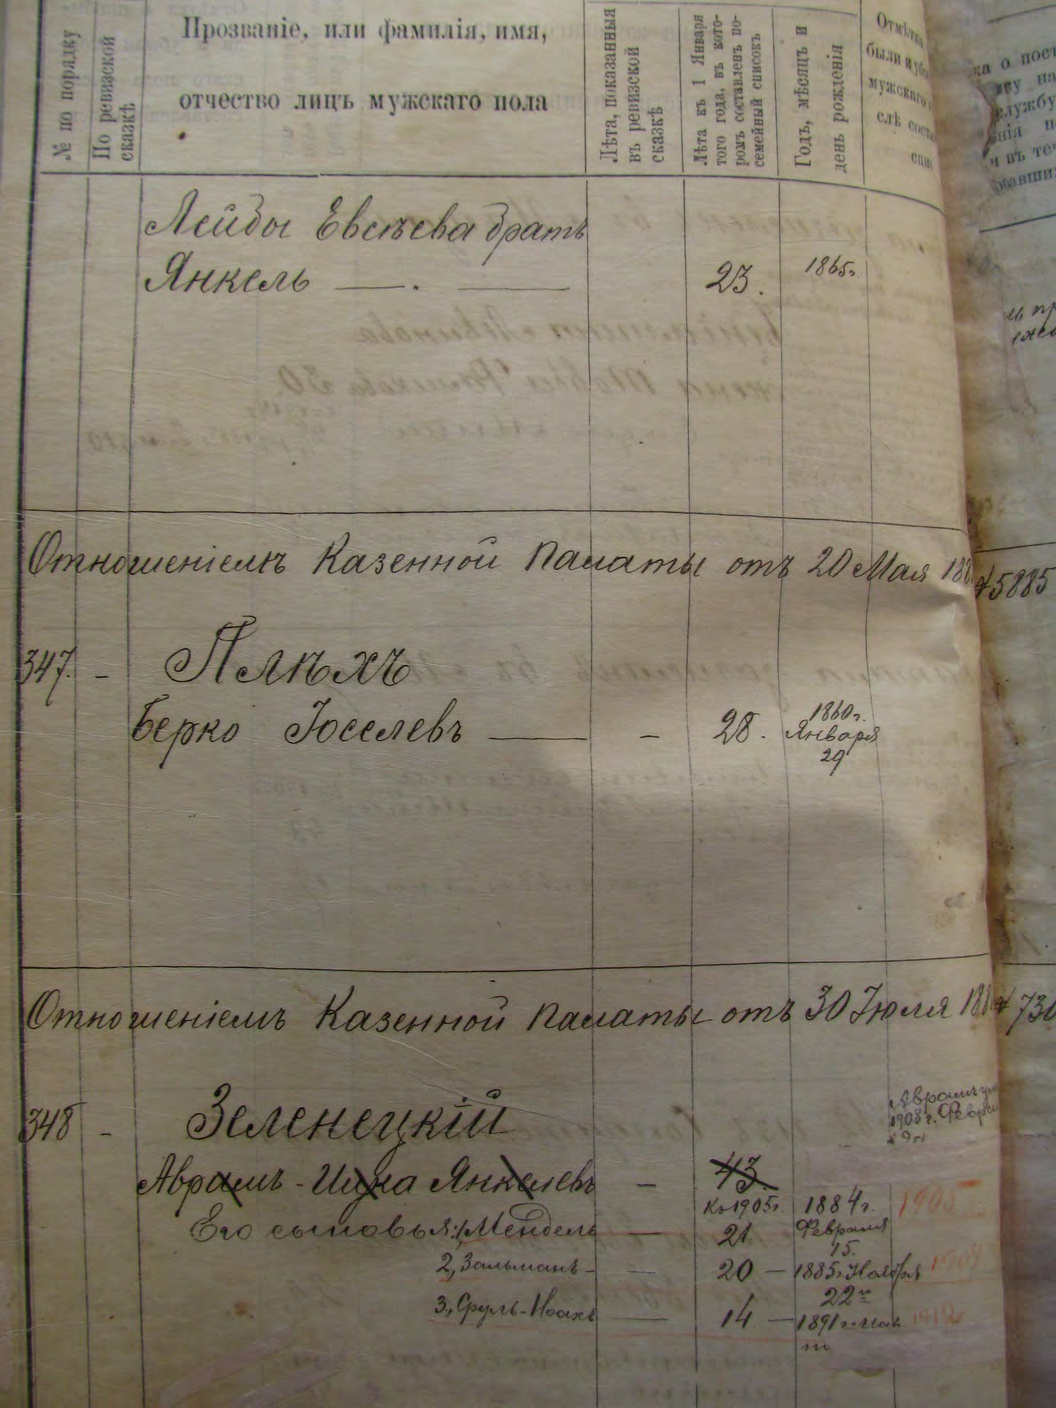 № по порядку
По ревизской сказкѣ
Прозваніе, или фамилія, имя,
отчество лицъ мужскаго пола
Лѣта, показанныя въ ревизской сказкѣ
Лѣта къ 1 Января того года, въ которомъ составленъ посемейный списокъ
Годъ, мѣсяцъ и день рожденія
Отмѣтка
были и убы
мужскаго
слѣ соста
спис
Лейбы Евсѣева братъ
Янкель — . — 23. 1865г.
Отношеніемъ Казенной Палаты отъ 20 Мая 188 № 5885
347. – Плѣхъ
Берко Іоселевъ — – 28. 1860г. Января 29
Отношеніемъ Казенной Палаты отъ 30 Іюля 188 № 730
348 – Зеленецкій
Аврамъ
1908 г. Февра
Аврамъ-Ицка Янкелевъ – 43.
Къ 1905г. 1884г. 1905
Его сыновья: 1, Мендель — 21 Февраля 15.
2, Зальманъ – — 20 – 1885г. Ноября 22го
3, Сруль-Ноахъ — 14 – 1891 г. мая 1912